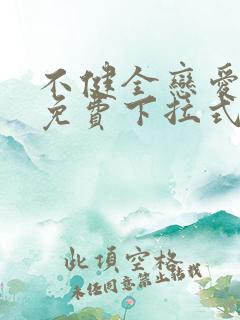 不健全戀愛
免費下拉式
此項空格
未经同意禁止转载